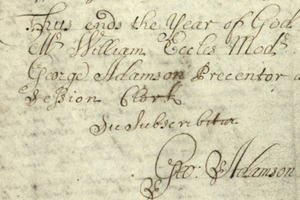 Thus ends the Year of God
Mr. William Eccles Modr.
George Adamson Precentor a
Session Clerk
Sic Subscribitur
Geo: Adamson